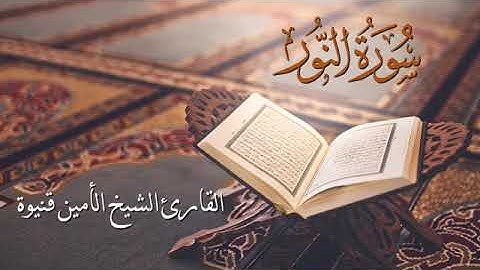 سُورَةُ النُّور
القارئ الشيخ الأمين قنيوة